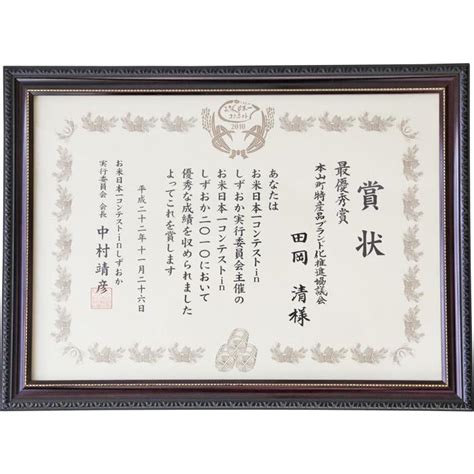 2010
賞状
最優秀賞
本山町特産品ブランド化推進協議会
田岡 清様
あなたは
しずおか実行委員会主催の
お米日本一コンテストin
お米日本一コンテストin
しずおか二〇一〇において
優秀な成績を収められました
よってこれを賞します
平成二十二年十一月二十六日
お米日本一コンテストinしずおか
実行委員会 会長 中村靖彦